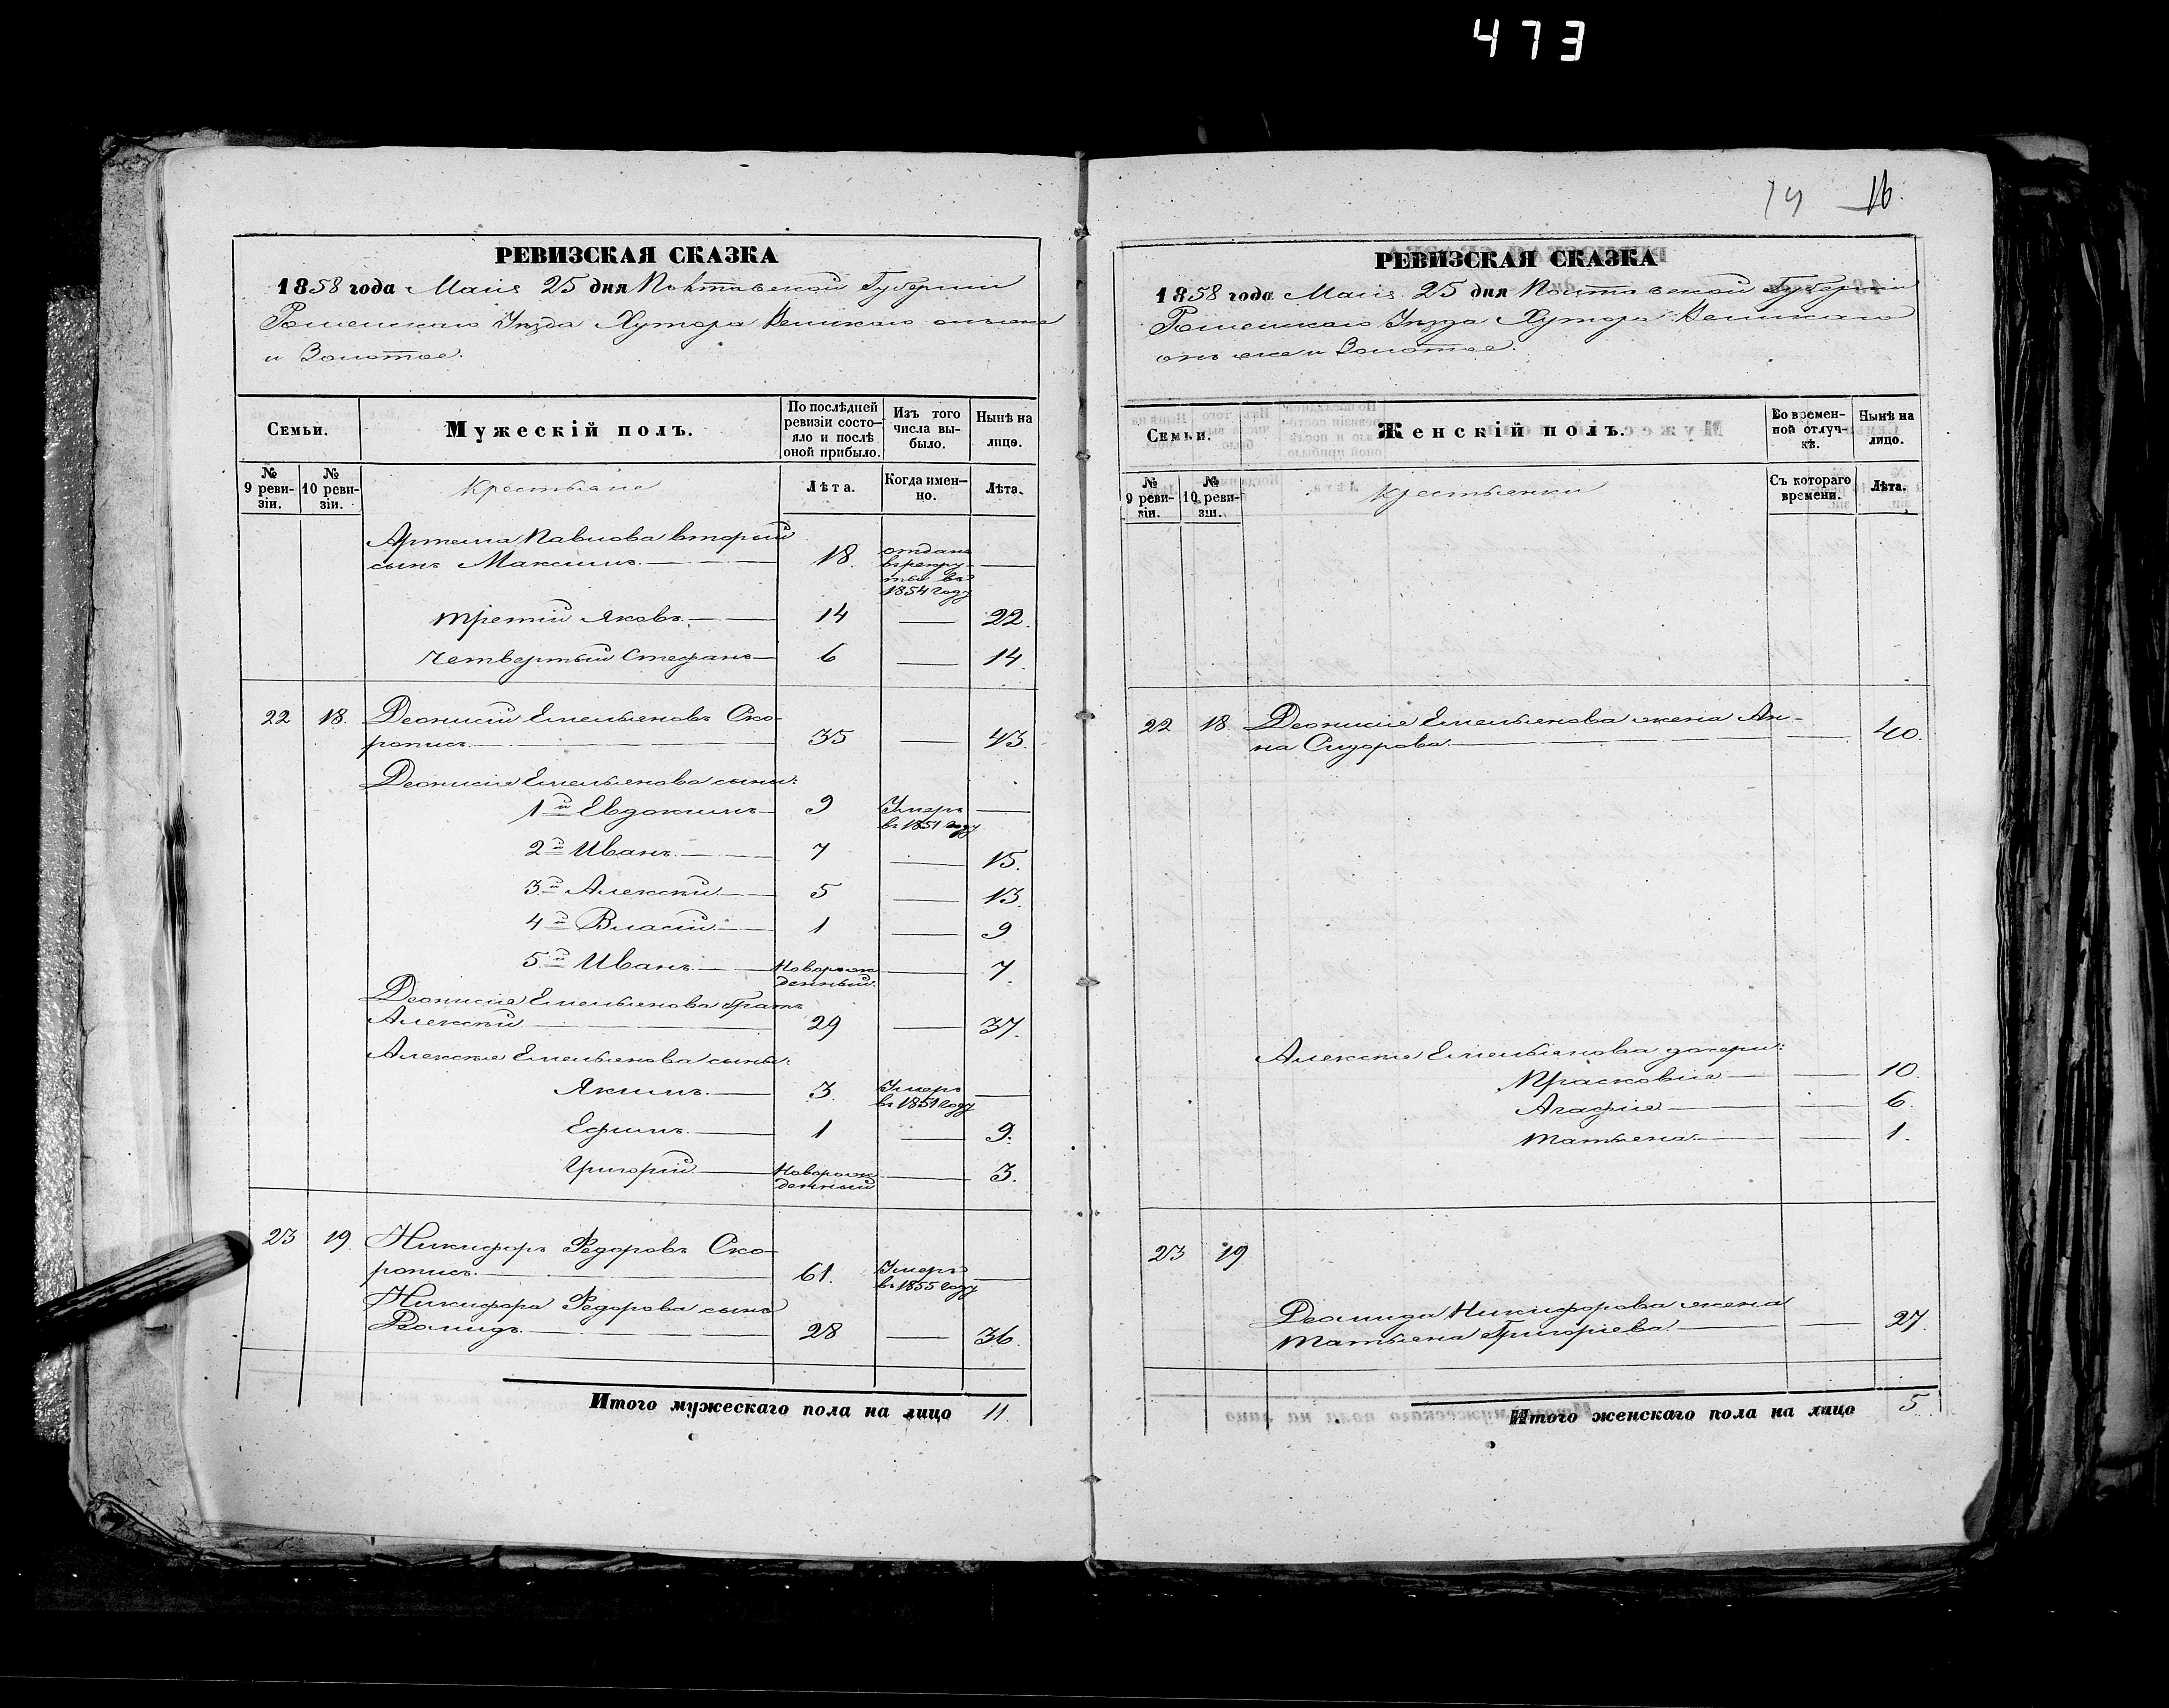 473
19 16.
РЕВИЗСКАЯ СКАЗКА
1858 года Маія 25 дня Полтавской Губерніи
Роменскаго Уѣзда Хутора Великаго
и Золотое.
Семьи.
Мужескій полъ.
По послѣдней ревизіи состо-
яло и послѣ оной прибыло.
Изъ того числа вы-
было.
Нынѣ на лицо.
№ 9 реви-
зіи.
№ 10 реви-
зіи.
Крестьяне
Лѣта.
Когда имен-
но.
Лѣта.
Артема Павлова вторый
сынъ Максимъ 18. отданъ
въ рекру-
ты въ
1854 году
третій Яковъ 14 22.
четвертый Стефанъ 6 14.
22 18. Деонисій Емельяновъ Ско-
рописъ 35 43.
Деонисія Емельянова сыны:
1й Евдокимъ 9 Умеръ
въ 1851 году
2й Иванъ 7 15.
3й Алексѣй 5 13.
4й Власій 1 9
5й Иванъ Новорож
денный 7.
Деонисія Емельянова братъ
Алексѣй 29 37.
Алексѣя Емельянова сыны:
Якимъ 3. Умеръ
въ 1851 году
Ефимъ 1 9.
Григорій Новорож
денный 3.
23 19. Никифоръ Федоровъ Ско-
рописъ 61. Умеръ
въ 1855 году
Никифора Федорова сынъ
28 36.
Итого мужескаго пола на лицо 11.
РЕВИЗСКАЯ СКАЗКА
1858 года Маія 25 дня Полтавской Губерніи
Роменскаго Уѣзда Хутора Великаго
и Золотое.
Семьи.
Женскій полъ.
Во времен-
ной отлуч-
кѣ.
Нынѣ на лицо.
№ 9 реви-
зіи.
№ 10 реви-
зіи.
Крестьянки
Съ котораго времени.
Лѣта.
22 18. Деонисія Емельянова жена Ан-
на Сидорова 40.
Алексѣя Емельянова дочери:
Прасковія 10.
Агафія 6.
Татьяна 1.
23 19
Никифорова жена
Татьяна Григоріева 27.
Итого женскаго пола на лицо 5